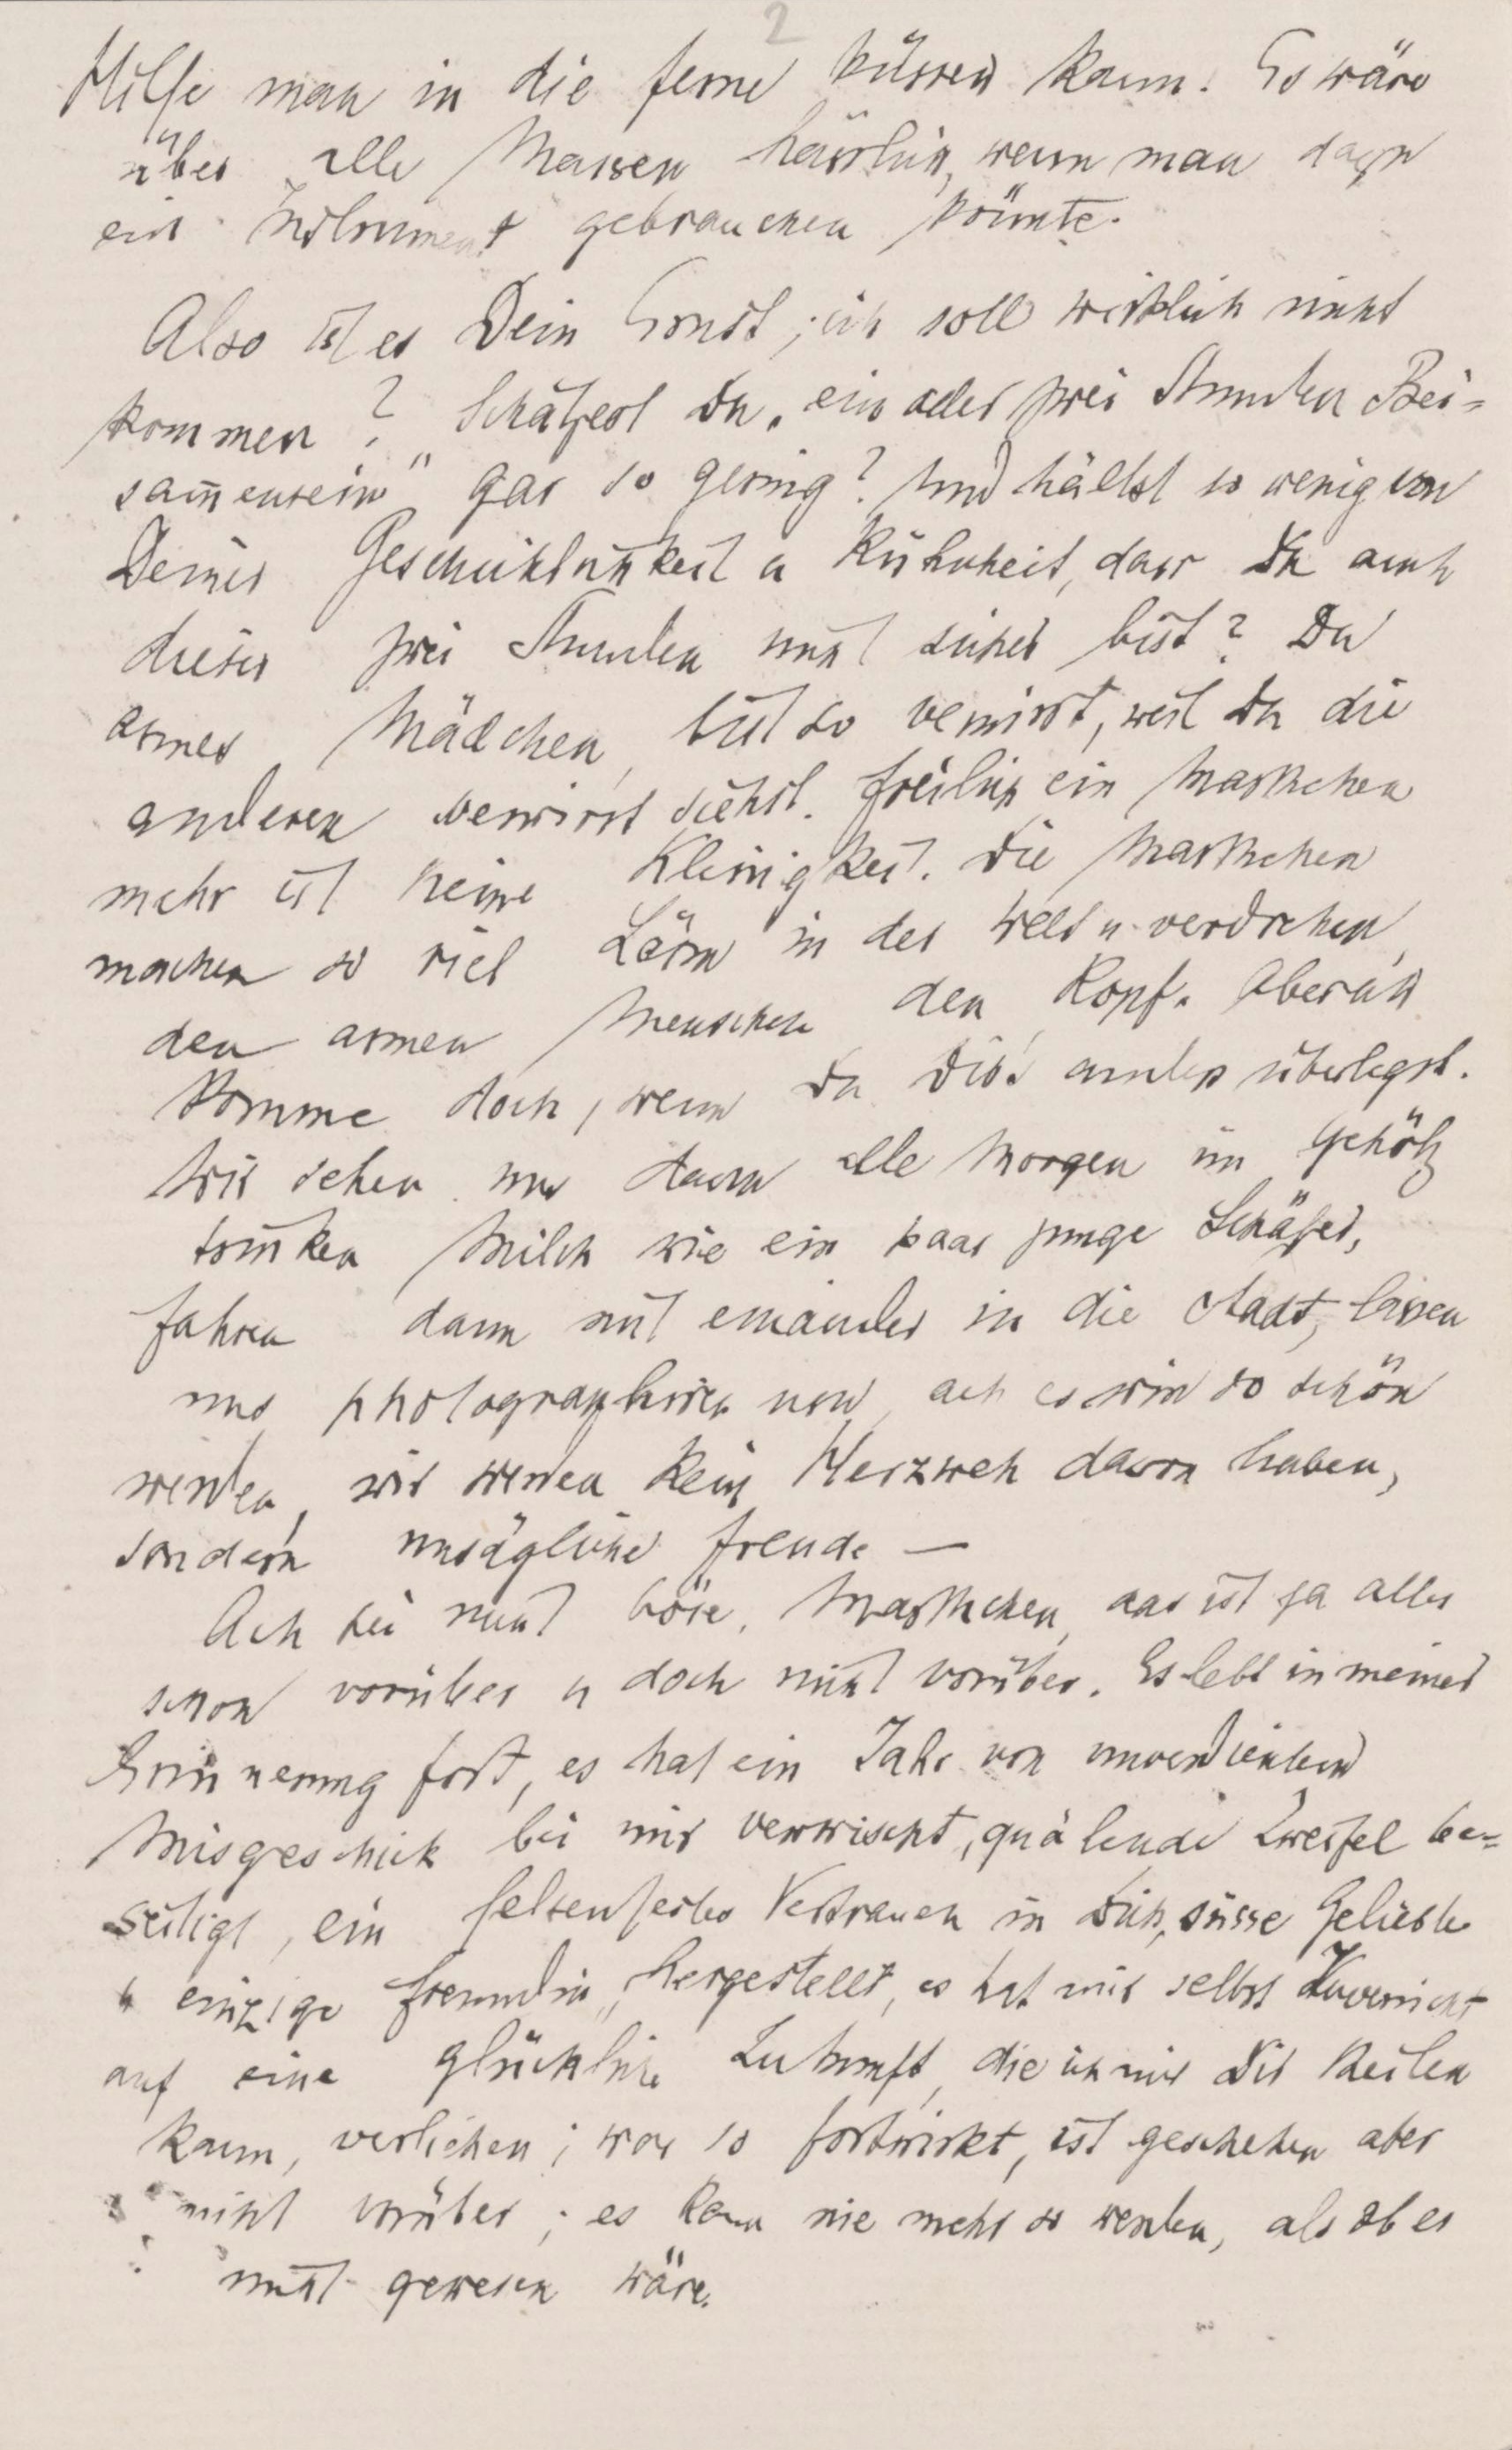 2
Hilfe man in die Ferne küssen kann. Es wäre
über alle Massen hässlich, wenn man dazu
ein Instrument gebrauchen könnte.
Also ist es Dein Ernst, ich soll wirklich nicht
kommen? Schätzest Du „ein oder zwei Stunden Bei=
sam̄ensein" gar so gering? Und hältst so wenig von
Deiner Geschicklichkeit u Kühnheit, dass Du auch
dieser zwei Stunden nicht sicher bist? Du
armes Mädchen, bist so verwirrt, weil Du die
anderen verwirrt siehst. Freilich ein Marthchen
mehr ist keine Kleinigkeit. Die Marthchen
machen so viel Lärm in der Welt u. verdrehen
den armen Menschen den Kopf. Aber ich
komme doch, wenn Du Dir's anders überlegst.
Wir sehen uns dann alle Morgen im Gehölz
trinken Milch wie ein paar junge Schäfer,
fahren dann mit einander in die Stadt, lassen
uns photographiren usw, ach es wird so schön
werden, wir werden kein Herzweh davon haben,
sondern unsägliche Freude —
Ach sei nicht böse, Marthchen, das ist ja alles
schon vorüber u doch nicht vorüber. Es lebt in meiner
Erinnerung fort, es hat ein Jahr von unverdientem
Misgeschick bei mir verwischt, quälende Zweifel be=
seitigt, ein felsenfestes Vertrauen in Dich, süsse Geliebte
u einzige Freundin, hergestellt, es hat mir selbst Zuversicht
auf eine glückliche Zukunft, die ich mit Dir theilen
kann, verliehen; was so fortwirkt, ist geschehen aber
nicht vorüber; es kann nie mehr so werden, als ob es
nicht gewesen wäre.